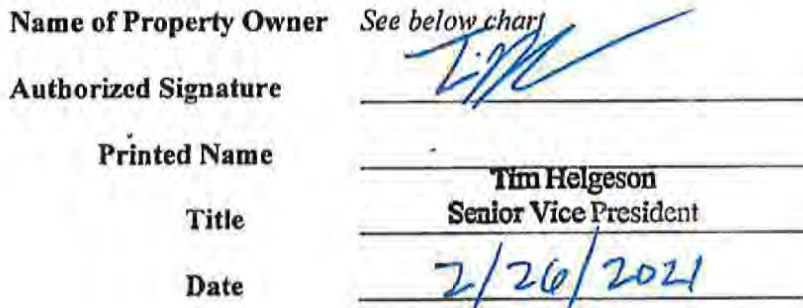 Name of Property Owner See below chart
Authorized Signature
Printed Name
Tim Helgeson
Title Senior Vice President
Date 2/26/2021